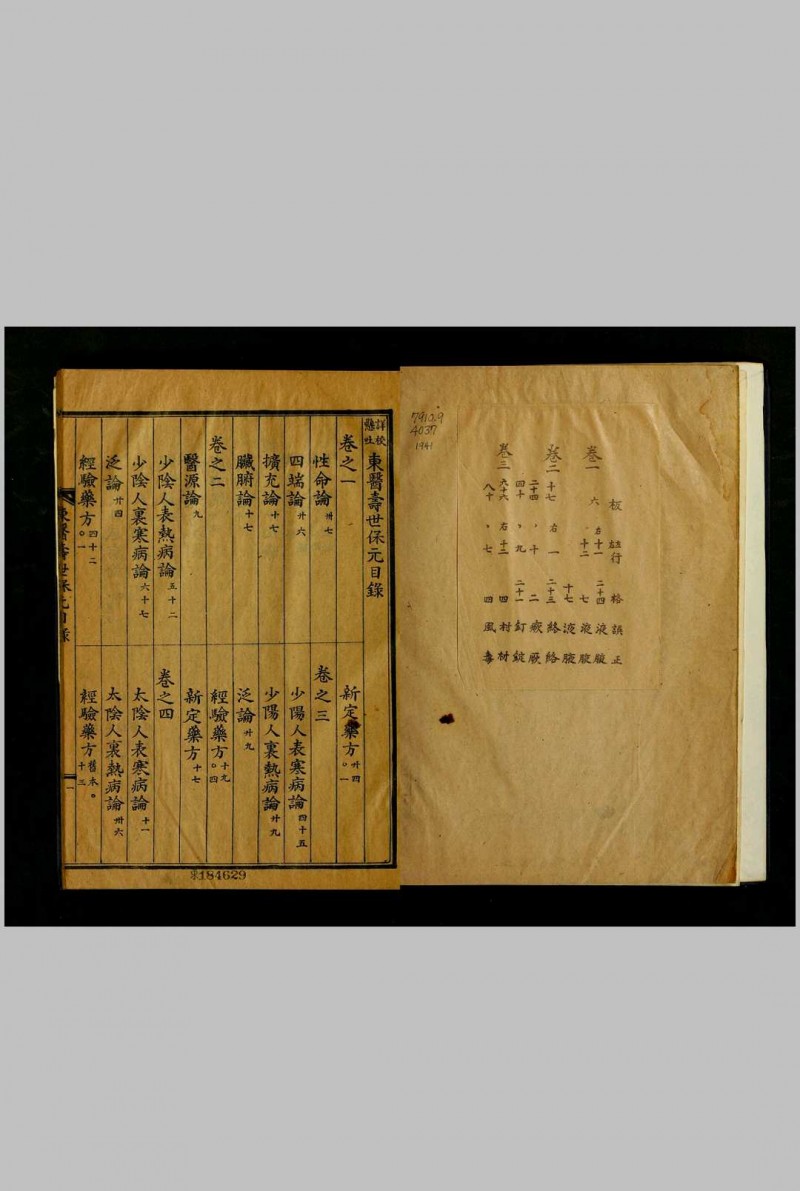 板 左右 行 格 誤 正
卷一 六 左 十一 二十四 液 腋
十二 七 液 腋
十七 液 腋
卷二 十七 右 一 二十三 絡 絡
二十四 〃 十 二 厥 厥
四十 〃 九 二十一 釘 錠
卷三 六十六 右 十二 四 村 材
八十 〃 七 四 風 毒
7910.9
4037
1941
詳校懸吐 東醫壽世保元目錄
卷之一
性命論 卅七
四端論 廾六
擴充論 十七
臟腑論 十七
卷之二
醫源論 九
少陰人表熱病論 五十二
少陰人裏寒病論 六十七
泛論 廾四
經驗藥方 四十二。一
新定藥方 廾四。一
卷之三
少陽人表寒病論 四十五
少陽人裏熱病論 廾九
泛論 廾九
經驗藥方 十九。四
新定藥方 十七
卷之四
太陰人表寒病論 十一
太陰人裏熱病論 卅六
經驗藥方 舊本。十三
東醫壽世保元目錄
一
184629